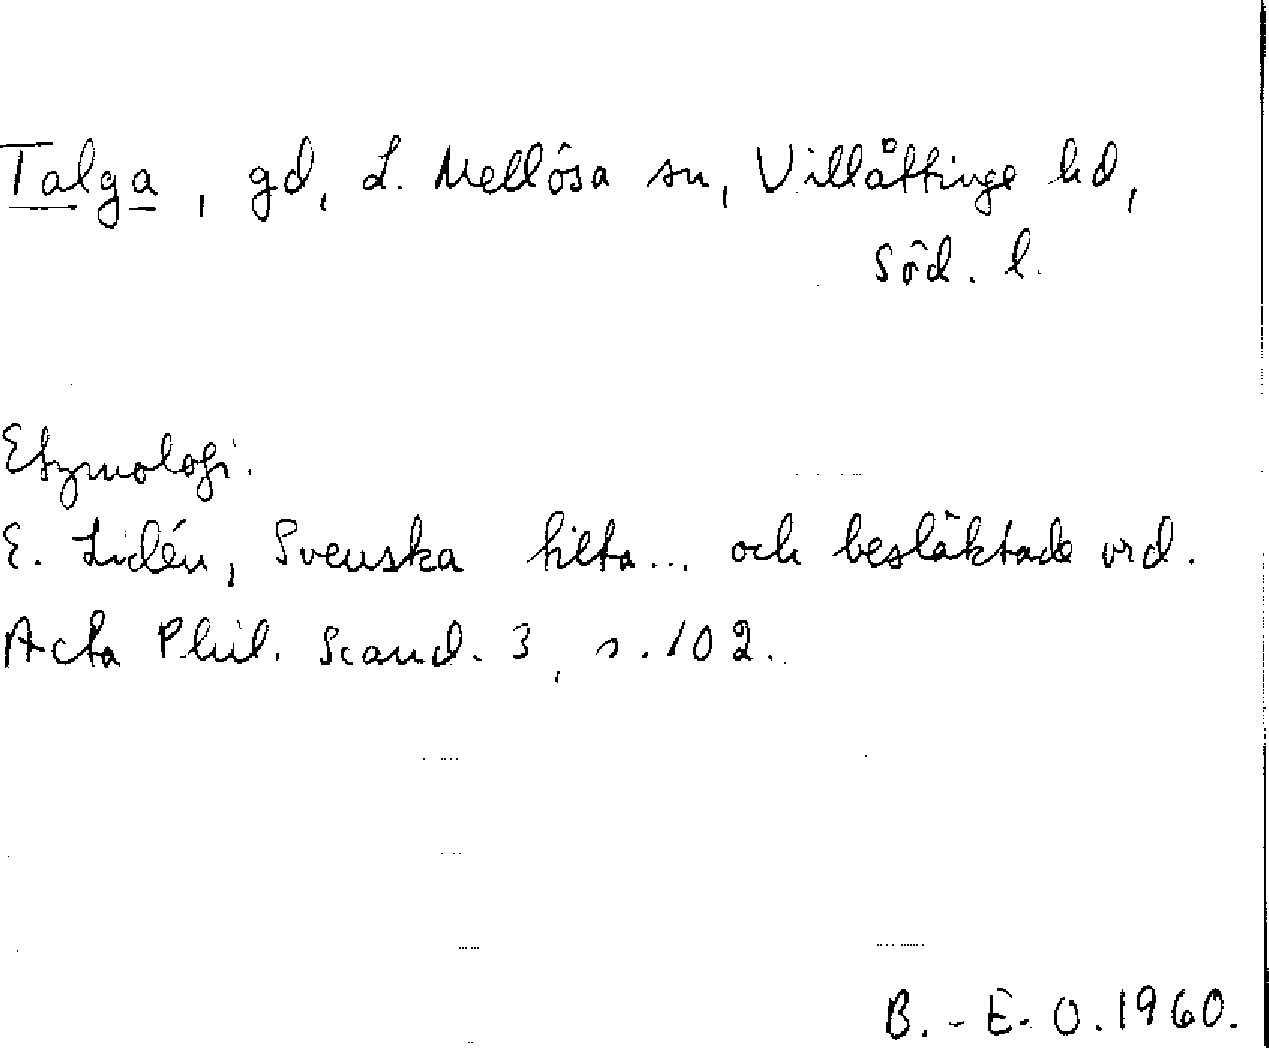 Talga, gd, L. Mellösa sn, Villåttinge hd,
Söd. l.
Etymologi.
E. Lidén, Svenska tilta... och besläktade ord.
Acta Phil. Scand. 3, s. 102.
B.-E. O. 1960.